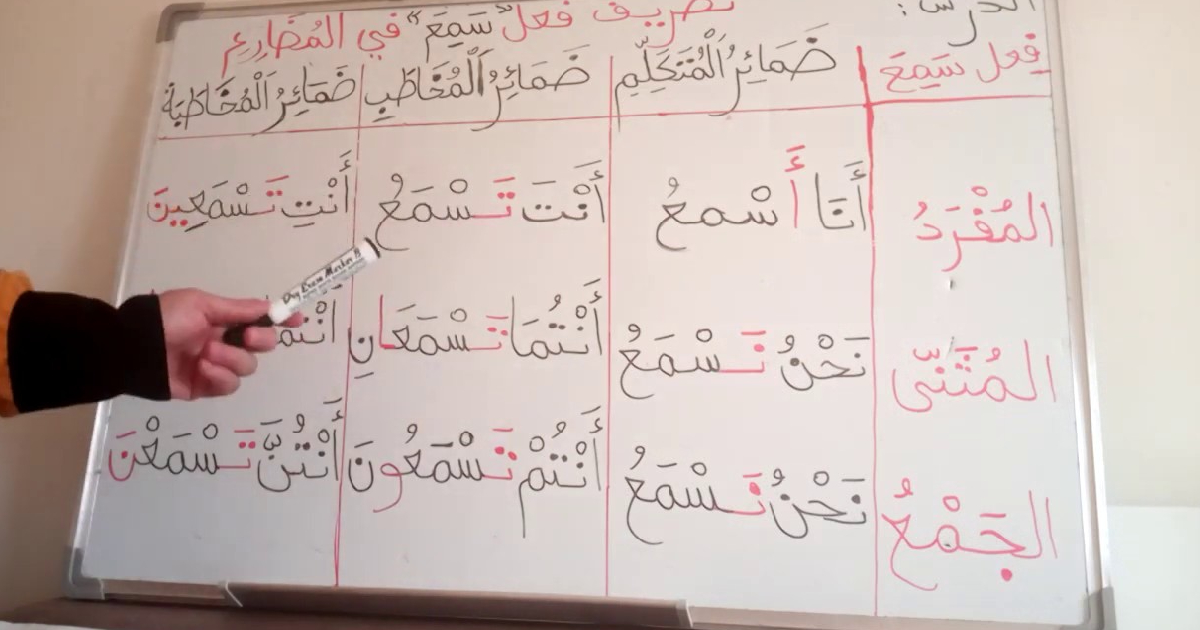 الدرس:
تصريف فعل "سَمِعَ" في المُضَارِعِ
فِعل سَمِعَ ضَمَائِرُ الْمُتَكَلِّمِ ضَمَائِرُ الْمُخَاطَبِ ضَمَائِرُ الْمُخَاطَبَةِ
المُفْرَدُ أَنَا أَسْمعُ أَنْتَ تَسْمَعُ أَنْتِ تَسْمَعِينَ
المُثَنّى نَحْنُ نَسْمَعُ أَنْتُمَا تَسْمَعَانِ
الجَمْعُ نَحْنُ نَسْمَعُ أَنْتُمْ تَسْمَعُونَ أَنْتُنَّ تَسْمَعْنَ